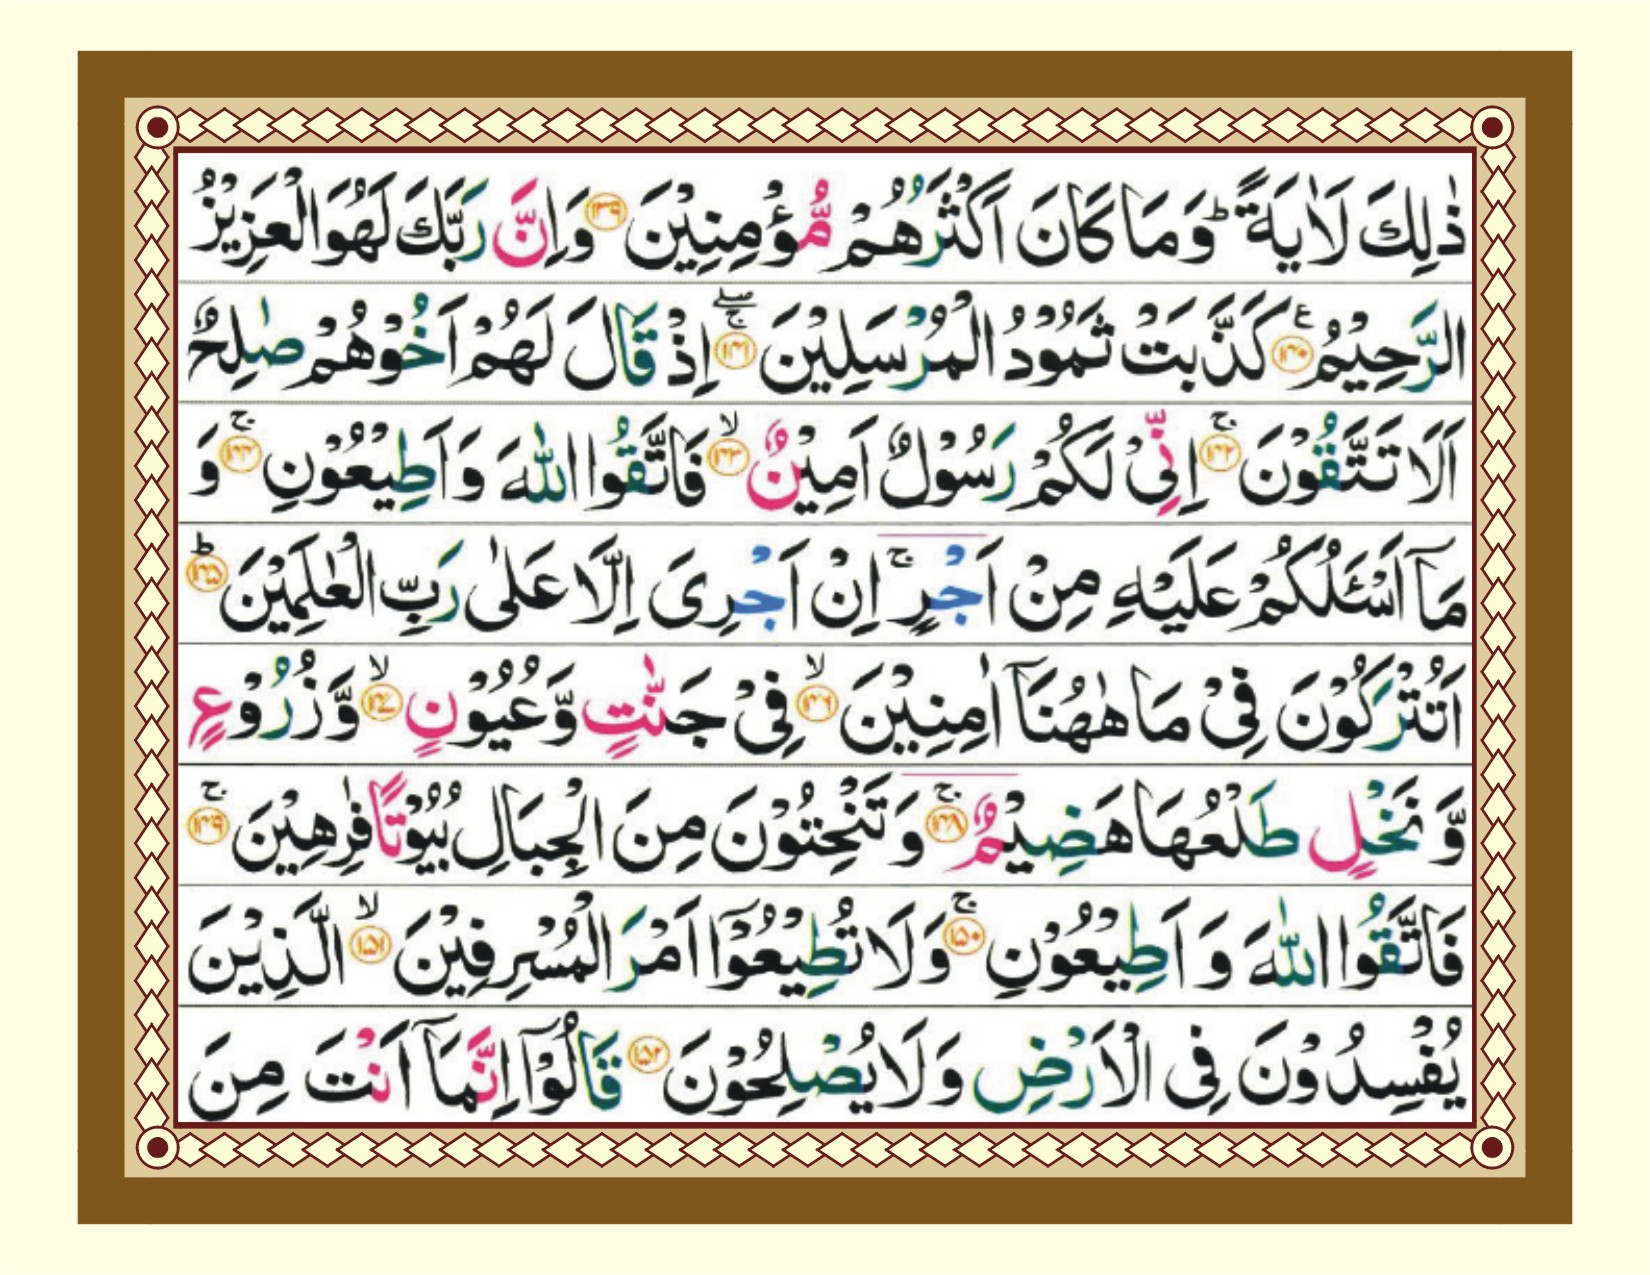 ذٰلِكَ لَاٰيَةً ؕ وَمَا كَانَ اَكْثَرُهُمْ مُّؤْمِنِيْنَ ﴿۱۳۹﴾ وَاِنَّ رَبَّكَ لَهُوَ الْعَزِيْزُ
الرَّحِيْمُ ﴿۱۴۰﴾ ع كَذَّبَتْ ثَمُوْدُ الْمُرْسَلِيْنَ ﴿۱۴۱﴾ ۖ ۚ اِذْ قَالَ لَهُمْ اَخُوْهُمْ صٰلِحٌ
اَلَا تَتَّقُوْنَ ﴿۱۴۲﴾ ۚ اِنِّىْ لَكُمْ رَسُوْلٌ اَمِيْنٌ ﴿۱۴۳﴾ ۙ فَاتَّقُوا اللّٰهَ وَاَطِيْعُوْنِ ﴿۱۴۴﴾ ۚ وَ
مَاۤ اَسْـَٔلُكُمْ عَلَيْهِ مِنْ اَجْرٍ ۚ اِنْ اَجْرِىَ اِلَّا عَلٰى رَبِّ الْعٰلَمِيْنَ ﴿۱۴۵﴾ ؕ
اَتُتْرَكُوْنَ فِىْ مَا هٰهُنَاۤ اٰمِنِيْنَ ﴿۱۴۶﴾ ۙ فِىْ جَنّٰتٍ وَّعُيُوْنٍ ﴿۱۴۷﴾ ۙ وَّزُرُوْعٍ
وَّنَخْلٍ طَلْعُهَا هَضِيْمٌ ﴿۱۴۸﴾ ۚ وَتَنْحِتُوْنَ مِنَ الْجِبَالِ بُيُوْتًا فٰرِهِيْنَ ﴿۱۴۹﴾ ۚ
فَاتَّقُوا اللّٰهَ وَاَطِيْعُوْنِ ﴿۱۵۰﴾ ۚ وَلَا تُطِيْعُوْۤا اَمْرَ الْمُسْرِفِيْنَ ﴿۱۵۱﴾ ۙ الَّذِيْنَ
يُفْسِدُوْنَ فِى الْاَرْضِ وَلَا يُصْلِحُوْنَ ﴿۱۵۲﴾ قَالُوْۤا اِنَّمَاۤ اَنْتَ مِنَ